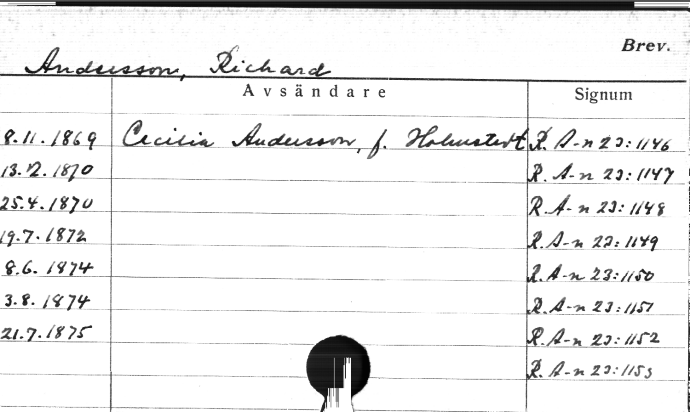 Brev.
Andersson, Richard
Avsändare Signum
9.11.1869 Cecilia Andersson, f. Holmstedt R. A-n 23:1146
13.12.1870 R. A-n 23:1147
25.4.1870 R. A-n 23:1148
19.7.1872 R. A-n 23:1149
8.6.1874 R. A-n 23:1150
3.8.1874 R. A-n 23:1151
21.7.1875 R. A-n 23:1152
R. A-n 23:1153